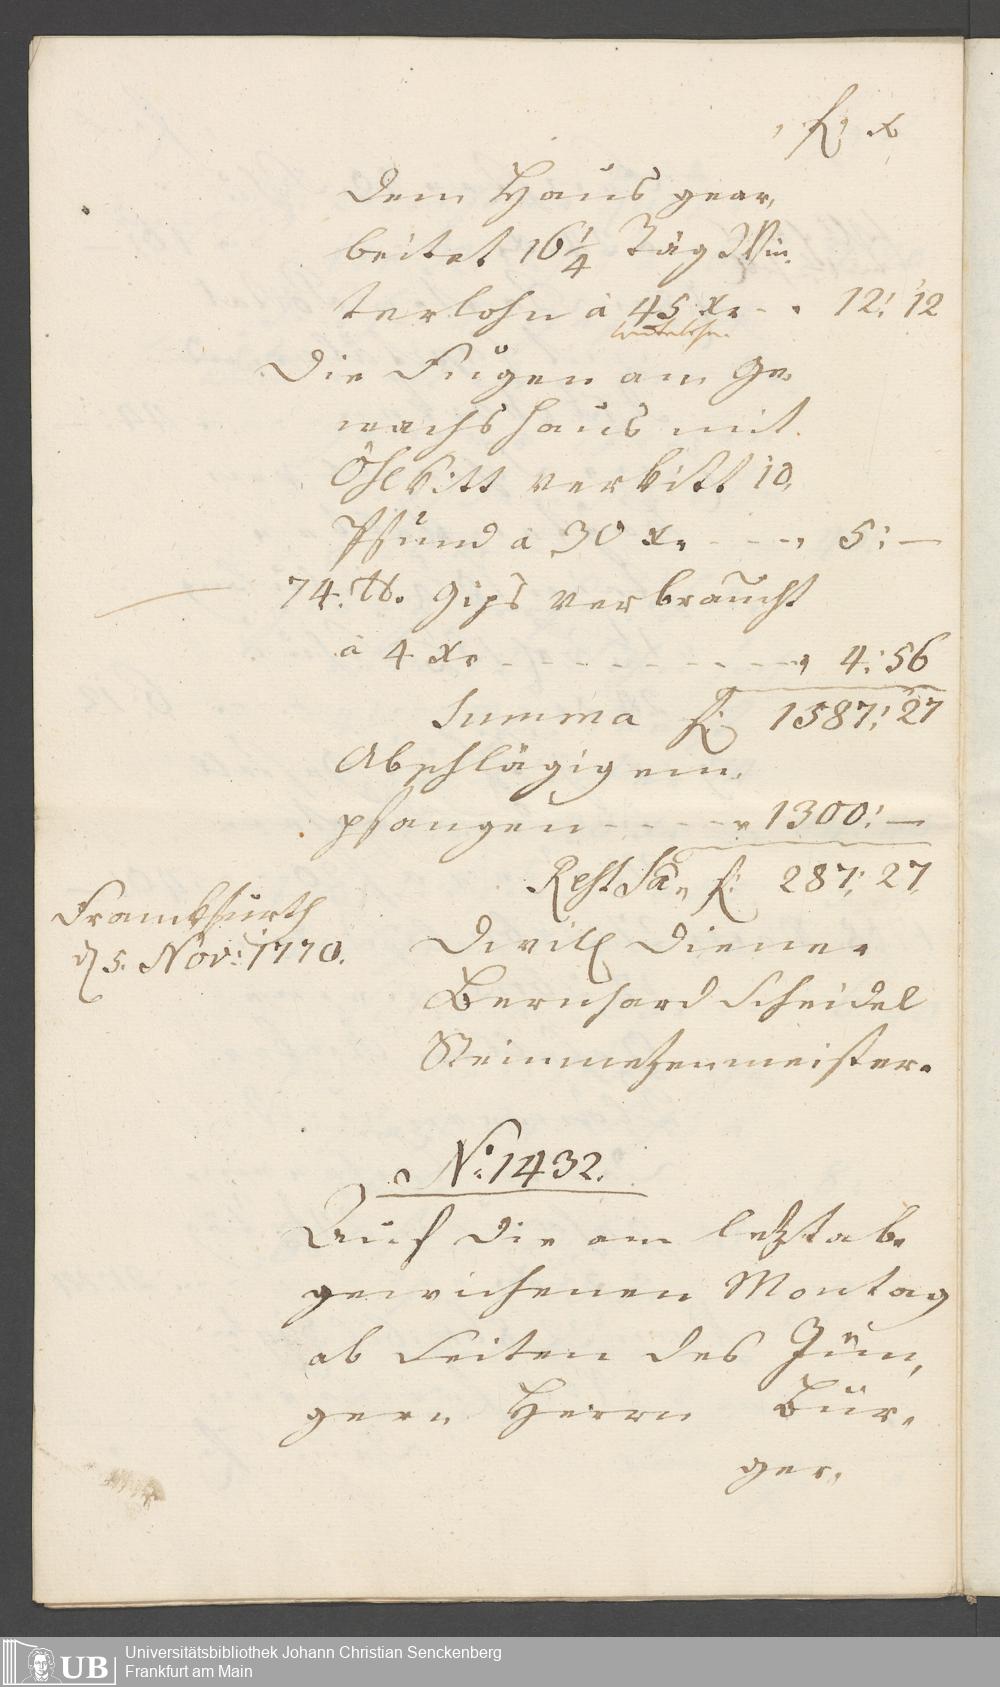 f: x
dem Haus gear,
beitet 16 1/4 Täg Win,
terlohn a 45 xr - - 12: 12
Die Fugen am Ge,
wachshaus mit
Öhlkitt verkitt 10,
Pfund a 30 xr - - - 5: —
74. tb. Gips verbraucht
à 4 xr - - - - - - - - - 4: 56
Summa f: 1587: 27
Abschlägig em,
pfangen - - - - - 1300: —
Rest Sa. f: 287: 27
Franckfurth
d 5. Nov: 1770.
Diener
Bernhard Scheidel
Steinmetzenmeister.
No: 1432.
Auf die am letztab,
gewichenen Montag
ab Seiten des Jün,
gern Herrn Bür,
ger,
UB
Universitätsbibliothek Johann Christian Senckenberg
Frankfurt am Main